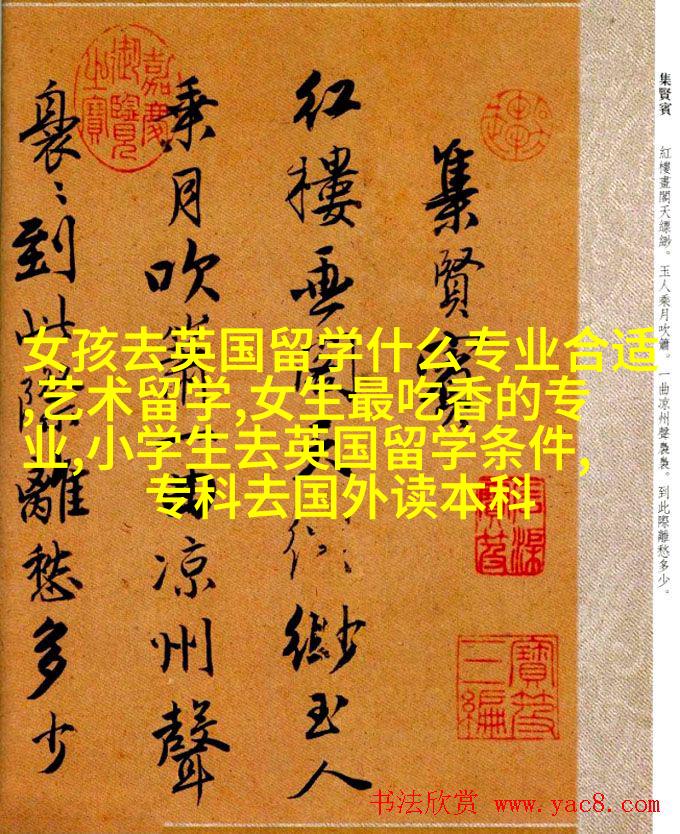 集賢賓
紅樓畫閣天縹緲。玉人乘月吹簫。一曲凉州聲裊裊。到此際離愁多少。
集賢賓
红樓画閣天縹緲玉人
乘月吹簫一曲凉州聲
裊〻到此際離愁多少
嘉慶御覽之寶
寶笈三編
女孩去英国留学什么专业合适
,艺术留学,女生最吃香的专
业,小学生去英国留学条件,
专科去国外读本科
书法欣赏 www.yac8.com